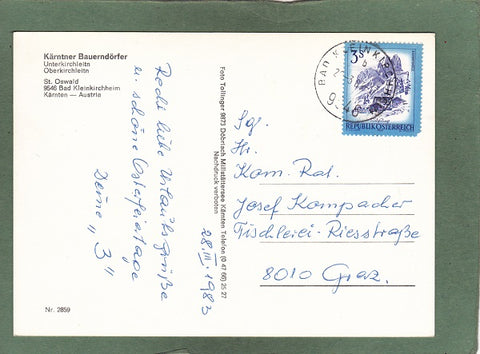 Kärntner Bauerndörfer
Unterkirchleitn
Oberkirchleitn
St. Oswald
9546 Bad Kleinkirchheim
Kärnten — Austria
Recht liebe Urlaubsgrüße
u. schöne Osterfeiertage
Deine „3"
28.III.1983
Foto Tollinger 9873 Döbriach Millstättersee Kärnten Telefon (0 42 46) 25 27
Nachdruck verboten
3S
REPUBLIK ÖSTERREICH
BAD KLEINKIRCHHEIM
9546
Sgf.
Hr.
Kom. Rat.
Josef Kompacher
Fischlerei-Riesstraße
8010 Graz.
Nr. 2859